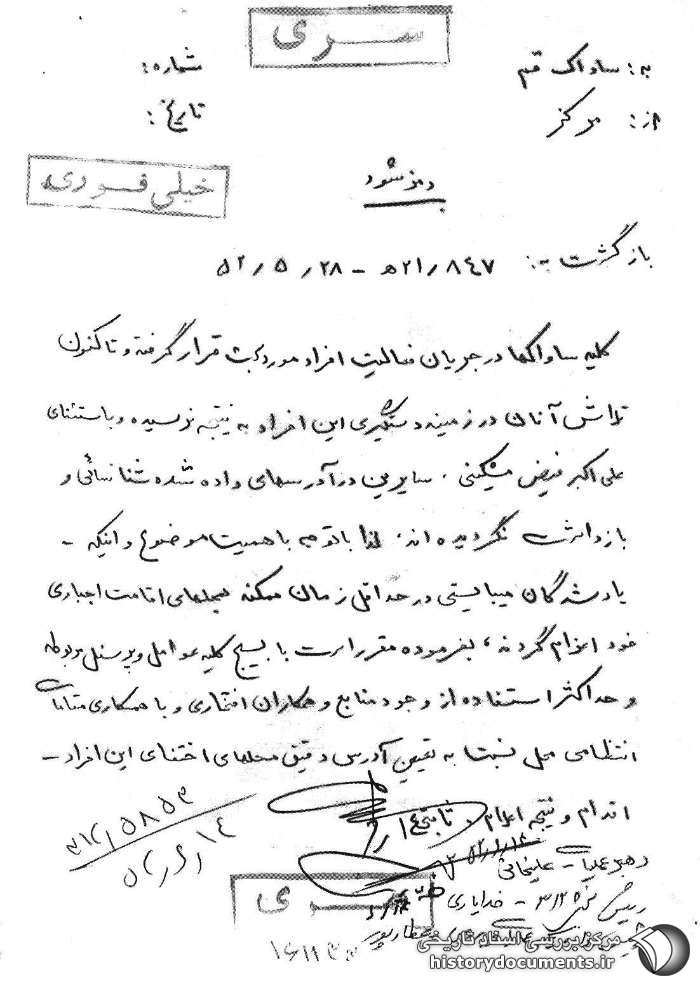 سری
به: ساواک قم
شماره:
از: مرکز
تاریخ:
خیلی فوری
رمز شود
بازگشت به: ۲۱/۸۴۷ه‍ - ۵۲/۵/۲۸
کلیه ساواکها در جریان فعالیت افراد مورد بحث قرار گرفته و تاکنون
تلاش آنان در زمینه دستگیری این افراد به نتیجه نرسیده و باستثنای
علی اکبر فیض مشکینی، سایرین در آدرسهای داده شده شناسائی و
بازداشت نگردیده اند. لذا باتوجه باهمیت موضوع و اینکه -
یادشدگان میبایستی در حداقل زمان ممکنه بمحلهای اقامت اجباری
خود اعزام گردند، بفرموده مقرر است با بسیج کلیه عوامل و پرسنل مربوطه
و حداکثر استفاده از وجود منابع و همکاران افتخاری و با همکاری مقامات
انتظامی محل نسبت به تعیین آدرس دقیق محلهای اختفای این افراد -
اقدام و نتیجه اعلام. ثابتی
رهبر عملیات - علیخانی
رئیس بخش ۳۱۲ - خدایاری
عطارپور
سری
مرکز بررسی اسناد تاریخی
historydocuments.ir